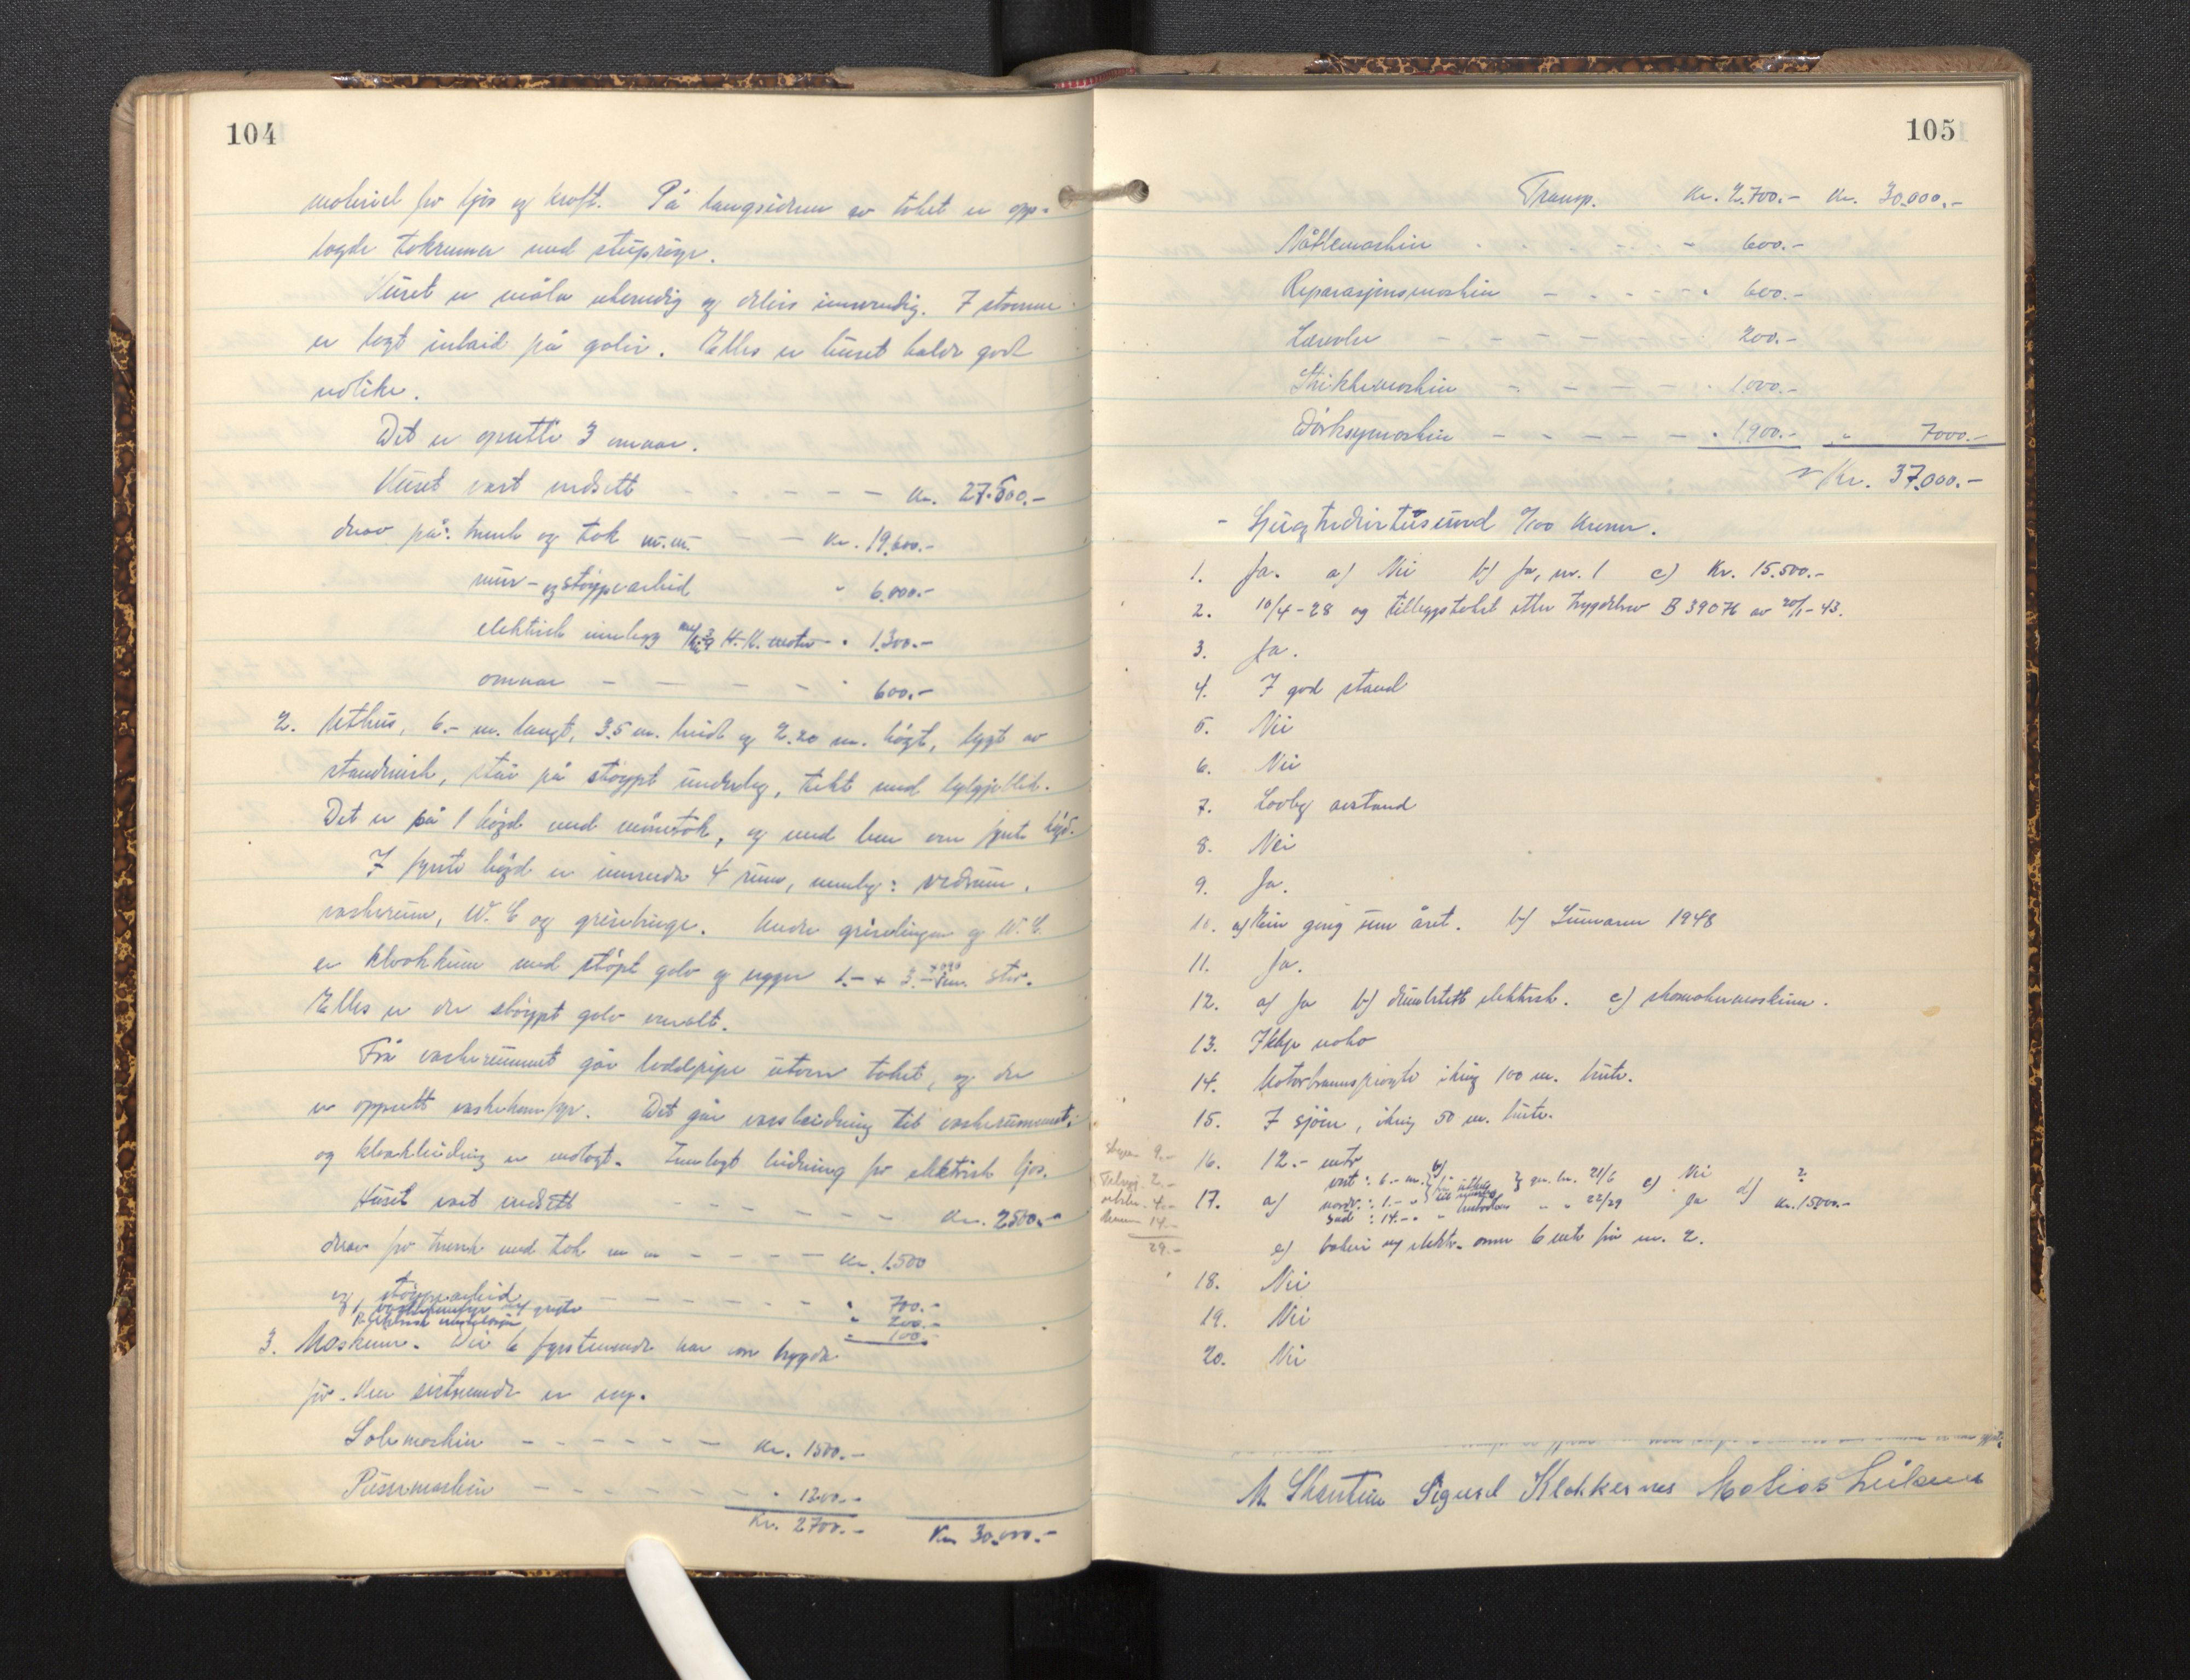 104
materiel for ljos og kraft. På langsidene av taket er opp-
lagde takrenner med stuprøyr.
Huset er måla utvendig og delvis innvendig. I stovene
er lagt inlaid på golv. Elles er huset halde godt
vedlike.
Det er opsette 3 omnar.
Huset vart verdsett - - - - - - kr. 27.500.-
derav på: trverk og tak m.m. - - kr. 19.600.-
mur- og støypearbeid " 6.000.-
elektrisk innlegg H.K. motor " 1.300.-
omnar - - - - - " 600.-
2. Uthus, 6.- m. langt, 3.5 m. breidt og 2.20 m. høgt, bygt av
standverk, står på støypt underlag, tekt med bylgjeblek.
Det er på 1 høgd med mønetak, og med lem over fyrste høgd.
I fyrste høgd er innreidd 4 rum, nemleg: vedrum,
vaskerum, W.C og grisebinge. Under grisebingen og W.C.
er kloakkum med støypt golv og vegger 1.- + 3.- m. stor.
Elles er der støypt golv overalt.
Frå vaskerummet går loddpipe utover taket, og der
er oppsett vaskekomfyr. Det går vassleidning til vaskerummet,
og kloakkleidning er nedlagt. Innlagt leidning for elektrisk ljos.
Huset vart verdsett - - - - - - kr. 2500.-
derav for trverk med tak m m - - - - kr. 1.500
og støypearbeid - - - - - - " 700.-
" 200.-
" 100.-
3. Maskiner. Dei 6 fyrstnemnde har vore trygda
før. Den sistnemde er ny.
Sålemaskin - - - - - - kr. 1500.-
Pussemaskin - - - - - - " 1200.-
Kr. 2700.- Kr. 30.000.-
105
Transp. Kr. 2.700.- Kr. 30.000.-
Nåtlemaskin - - - - - 600.-
Reparasjonsmaskin - - - - - 600.-
- - - - - - 200.-
Strikkemaskin - - - - - 1.000.-
Dørksymaskin - - - - - " 1.900.- " 7000.-
Kr. 37.000.-
- Sjugtredivetusund 0/100 kroner.
1. Ja. a) Nei b) Ja, nr. 1 c) Kr. 15.500.-
2. 10/4-28 og tilleggstakst etter trygdebrev B 39076 av 20/1-43.
3. Ja.
4. I god stand
5. Nei
6. Nei
7. Lovleg avstand
8. Nei
9. Ja.
10. a) Ein gong um året. b) Sumaren 1948
11. Ja.
12. a) Ja b) elektrisk. c) skomakermaskiner.
13. Ikkje noko
14. Motorbrannsprøyte ikring 100 m. burte.
15. I sjøen, ikring 50 m. burte.
16. 12.- meter
17. a) vest: 6.- m. b) gnr. bnr. 21/6 c) Nei d) ?
nord: 1.- " " " 22/29 Ja Kr. 15000.-
sud: 14.- "
e) bakeri m/ elektr. omn 6 meter frå nr. 2.
9.-
2.-
4.-
14.-
29.-
18. Nei
19. Nei
20. Nei
M Skartun Sigurd Klakkernes Matias Leikner